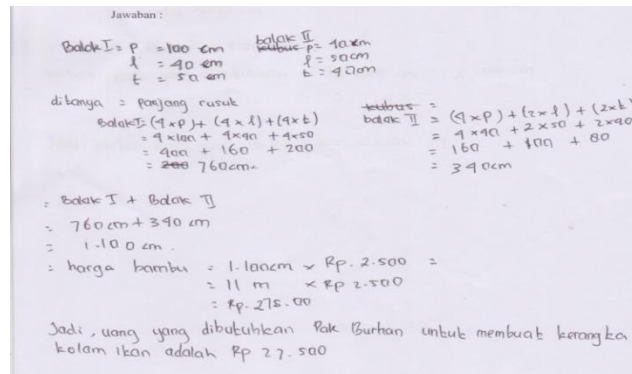 Jawaban :
Balok I = p = 100 cm
l = 40 cm
t = 50 cm
balok II
kubus p = 40 cm
l = 50 cm
t = 40 cm
ditanya = panjang rusuk
Balok I = (4xp) + (4 x l) + (4xt)
= 4 x 100 + 4x40 + 4x50
= 400 + 160 + 200
= 200 760cm.
kubus =
balok II = (4xp) + (2xl) + (2xt)
= 4 x 40 + 2 x 50 + 2 x 40
= 160 + 100 + 80
= 340cm
= Balok I + Balok II
= 760 cm + 340 cm
= 1.100 cm.
= harga bambu = 1.100cm x Rp. 2.500 =
= 11 m x Rp 2.500
= Rp. 275.00
Jadi, uang yang dibutuhkan Pak Burhan untuk membuat kerangka
kolam ikan adalah Rp 27.500